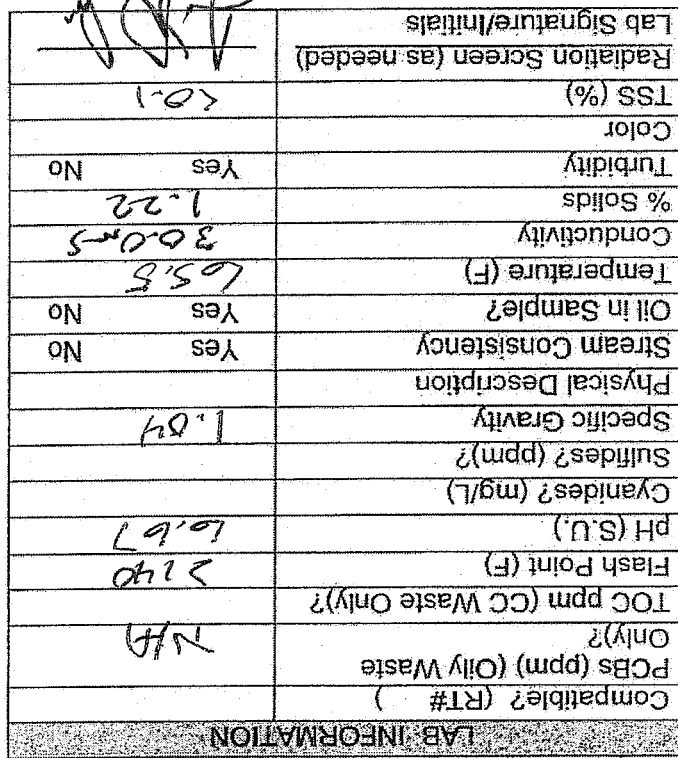 LAB INFORMATION
Compatible? (RT# )
PCBs (ppm) (Oily Waste
Only)? N/A
TOC ppm (CC Waste Only)?
Flash Point (F) >140
pH (S.U.) 6.67
Cyanides? (mg/L)
Sulfides? (ppm)?
Specific Gravity 1.04
Physical Description
Stream Consistency Yes No
Oil in Sample? Yes No
Temperature (F) 65.5
Conductivity 30.0mS
% Solids 1.22
Turbidity Yes No
Color
TSS (%) <0.1
Radiation Screen (as needed)
Lab Signature/Initials